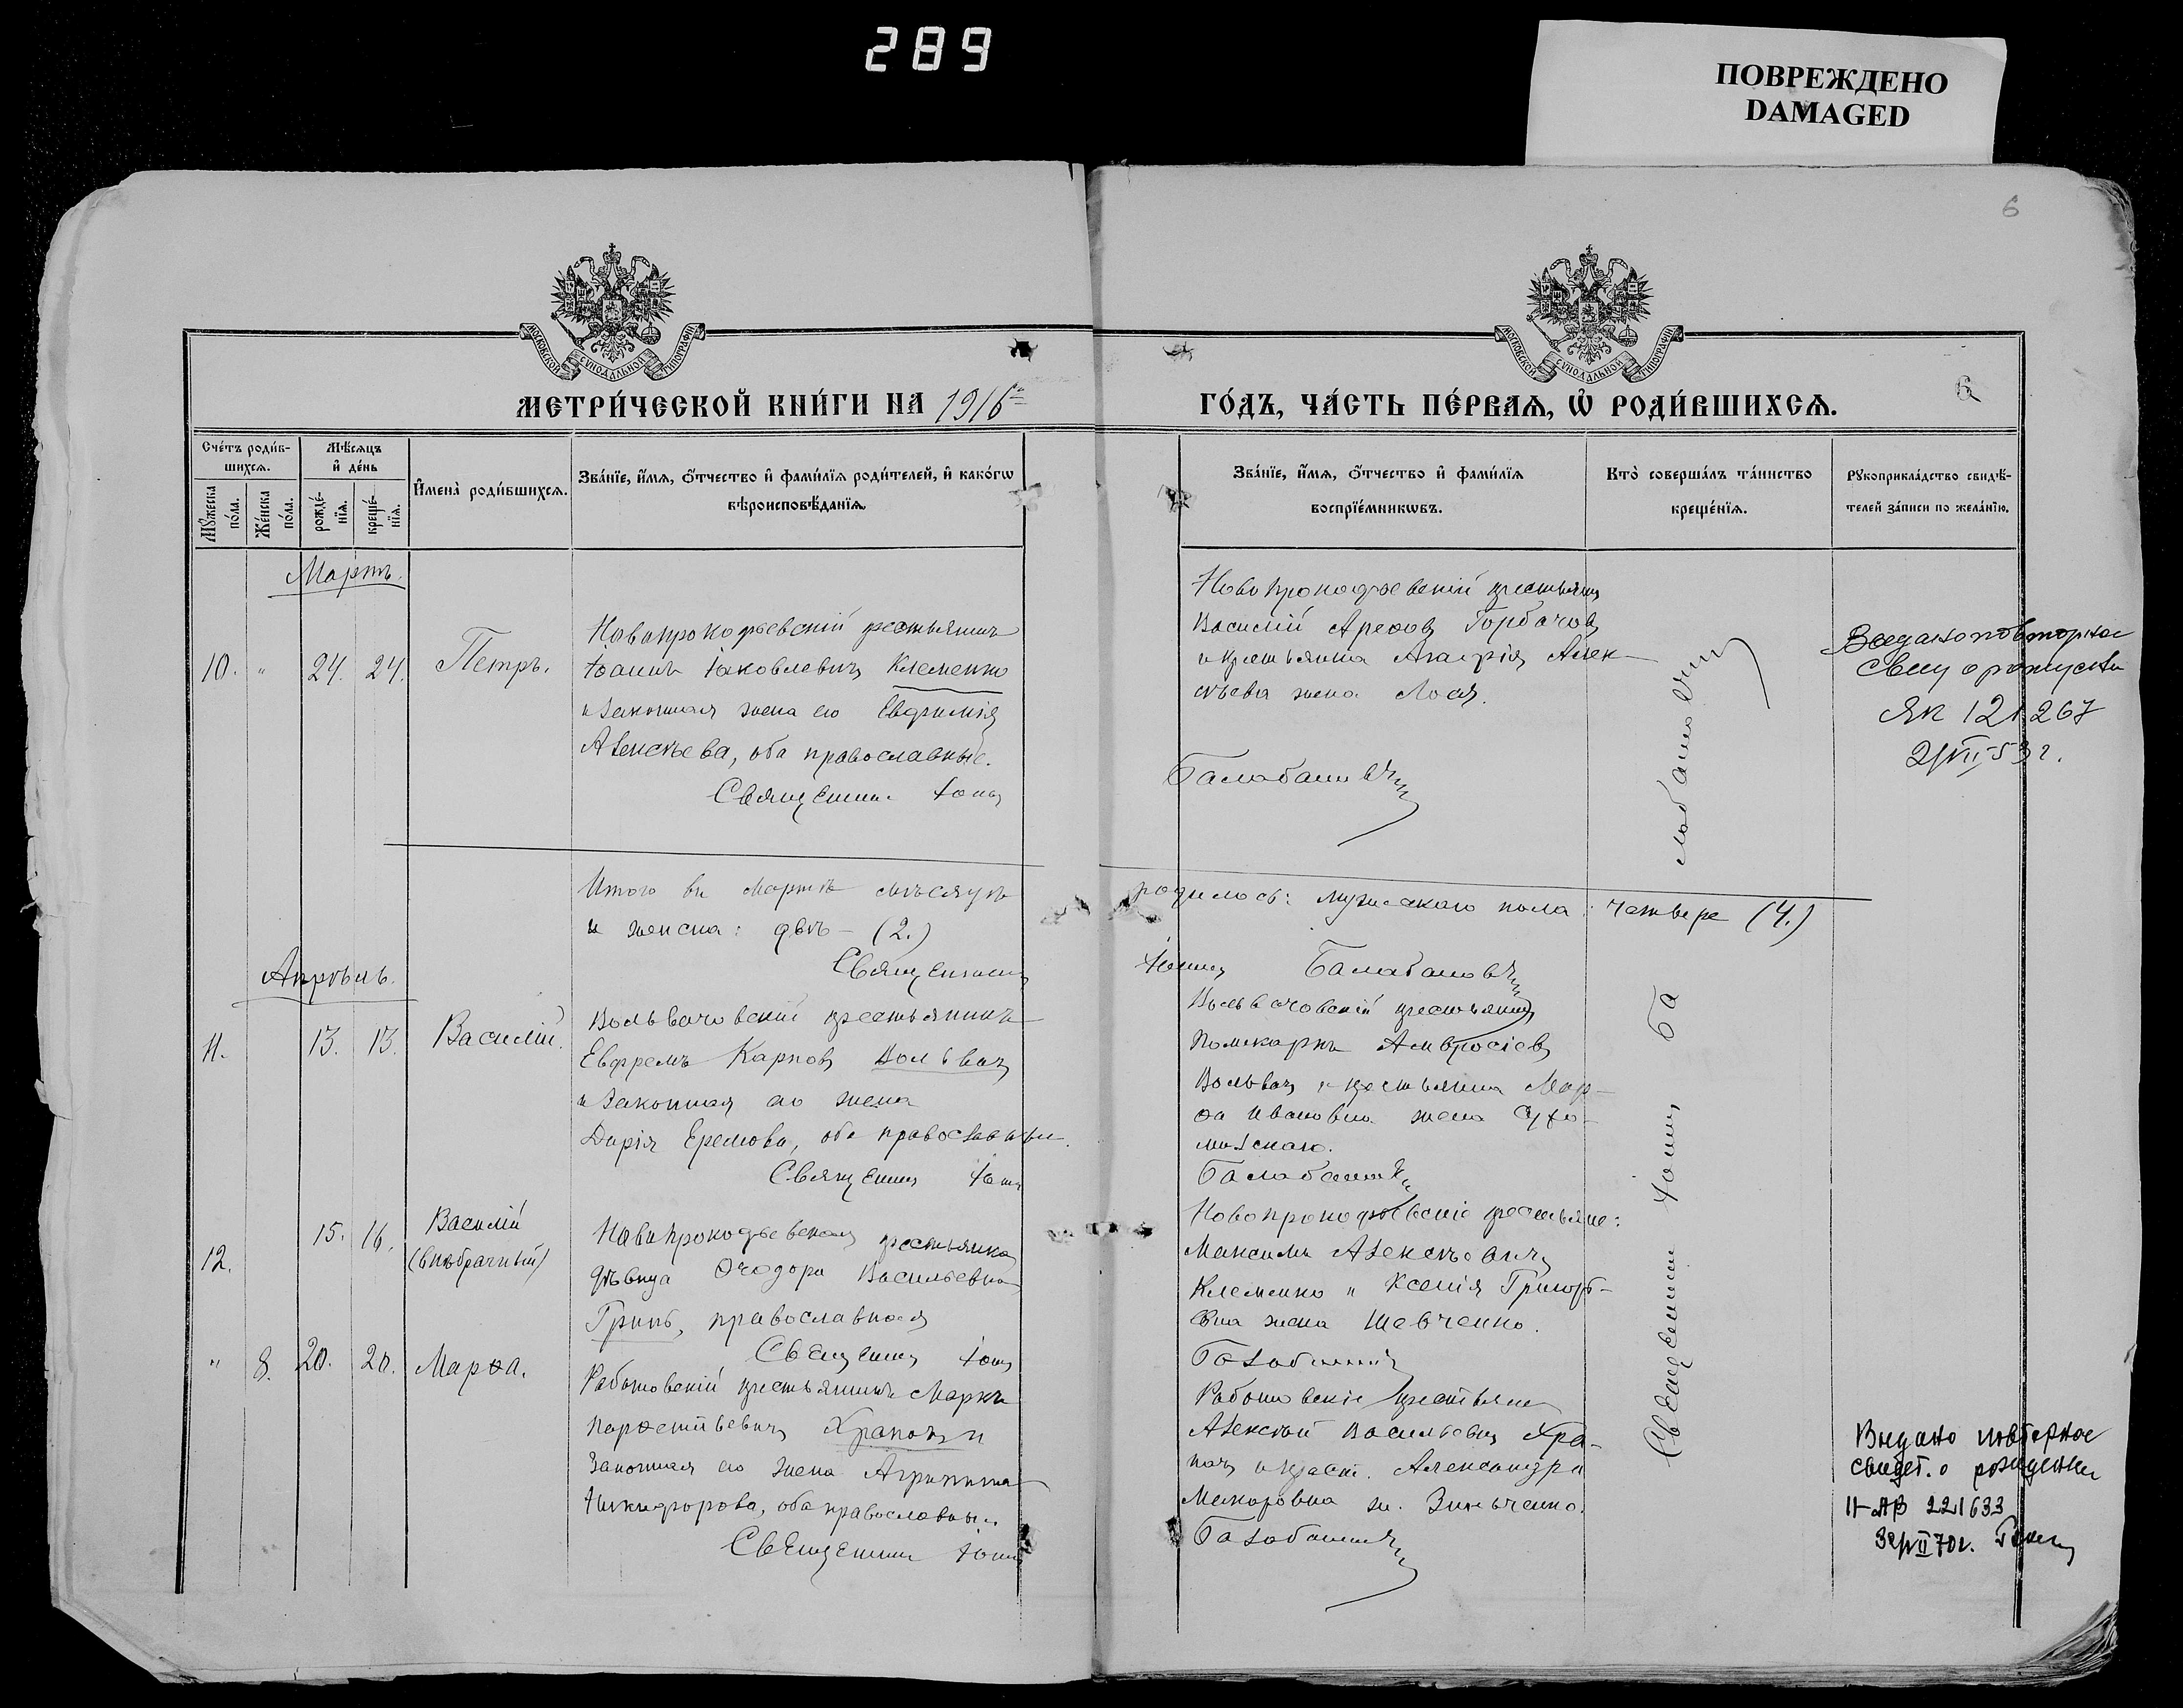 289
ПОВРЕЖДЕНО
DAMAGED
6
МОСКОВСКОЙ СУНОДАЛЬНОЙ ТИПОГРАФІИ
МОСКОВСКОЙ СУНОДАЛЬНОЙ ТИПОГРАФІИ
МЕТРИ́ЧЕСКОЙ КНИ́ГИ НА 1916
ГО́ДЪ, ЧА́СТЬ ПЕ́РВАЯ, Ѡ҆ РОДИ́ВШИХСЯ.
6
Сче́тъ роди́в-
шихся.
Мѣсяцъ
и҆ де́нь
Мꙋ́жеска
по́ла.
Же́нска
по́ла.
рожде́-
нїя.
креще́-
нїя.
И҆мена̀ роди́вшихся.
Зва́нїе, и҆́мя, ѻ҆́тчество и҆ фами́лїя роди́телей, и҆ како́гѡ
вѣроисповѣ́данїя.
Зва́нїе, и҆́мя, ѻ҆́тчество и҆ фами́лїя
воспрїе́мникѡвъ.
Кто̀ соверша́лъ та́инство
креще́нїя.
Рꙋкоприкла́дство свидѣ́-
телей за́писи по жела́нїю.
Мартъ.
10. " 24. 24. Петръ.
Новопрокофьевскій крестьянинъ
Іоаннъ Іаковлевичъ Клеменко
и законная жена его Евфимія
Алексѣева, оба православные.
Священникъ Іоаннъ
Новопрокофьевскій крестьянинъ
Василій Горбачовъ
и крестьянка Алек-
сѣева жена Лося.
Балабановичъ
Выдано повторное
свид о рождении
ЯК 121267
2/VII-53 г.
Итого въ Мартѣ мѣсяцѣ
родилось: мужескаго пола: четверо (4.)
и женска: двѣ — (2.)
Священникъ
Іоаннъ Балабановичъ
Апрѣль.
11. 13. 13. Василій.
Вольвачовскій крестьянинъ
Ефремъ Карповъ Вольвачъ
и законная его жена
Дарія Еремова, оба православны.
Священникъ Іоаннъ
Вольвачовскій крестьянинъ
Поликарпъ Амвросіевъ
Вольвачъ и крестьянка Мар-
ѳа Ивановна жена Сухо-
млскаго.
Балабановичъ
12. 15. 16. Василій
(внѣбрачный)
Новопрокофьевская крестьянка
дѣвица Ѳеодора Васильевна
Гринь, православная
Священникъ Іоаннъ
Новопрокофьевскіе крестьяне:
Максимъ Алексѣевичъ
Клеменко и Ксенія Григорь-
евна жена Шевченко.
Балабановичъ
" 8. 20. 20. Марѳа.
Работовскій крестьянинъ Маркъ
Парѳентьевичъ Храпачъ и
законная его жена Агриппина
Никифорова, оба православны.
Священникъ Іоаннъ
Работовскіе крестьяне
Алексѣй Васильевичъ Хра-
пачъ и крест. Александра
Макаровна ж. Зинченко.
Балабановичъ
Священникъ Іоаннъ Балабановичъ
Выдано повторное
свидет. о рождении
II-АВ 221633